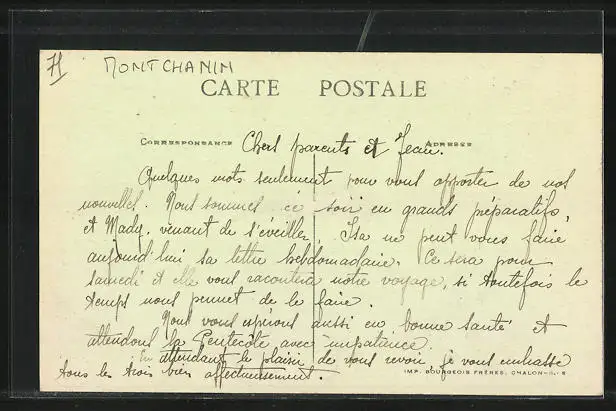 71 MONTCHANIN
CARTE POSTALE
CORRESPONDANCE ADRESSE
Chers parents et Jean.
Quelques mots seulement pour vous apporter de nos
nouvelles. Nous sommes ce soir en grands préparatifs,
et Mady, venant de s'éveiller, Isa ne peut vous faire
aujourd'hui sa lettre hebdomadaire. Ce sera pour
samedi et elle vous racontera notre voyage, si toutefois le
temps nous permet de le faire.
Nous vous espérons aussi en bonne santé et
attendons la Pentecôte avec impatience.
En attendant le plaisir de vous revoir, je vous embrasse
tous les trois bien affectueusement.
IMP. BOURGEOIS FRÈRES, CHALON-S.-S